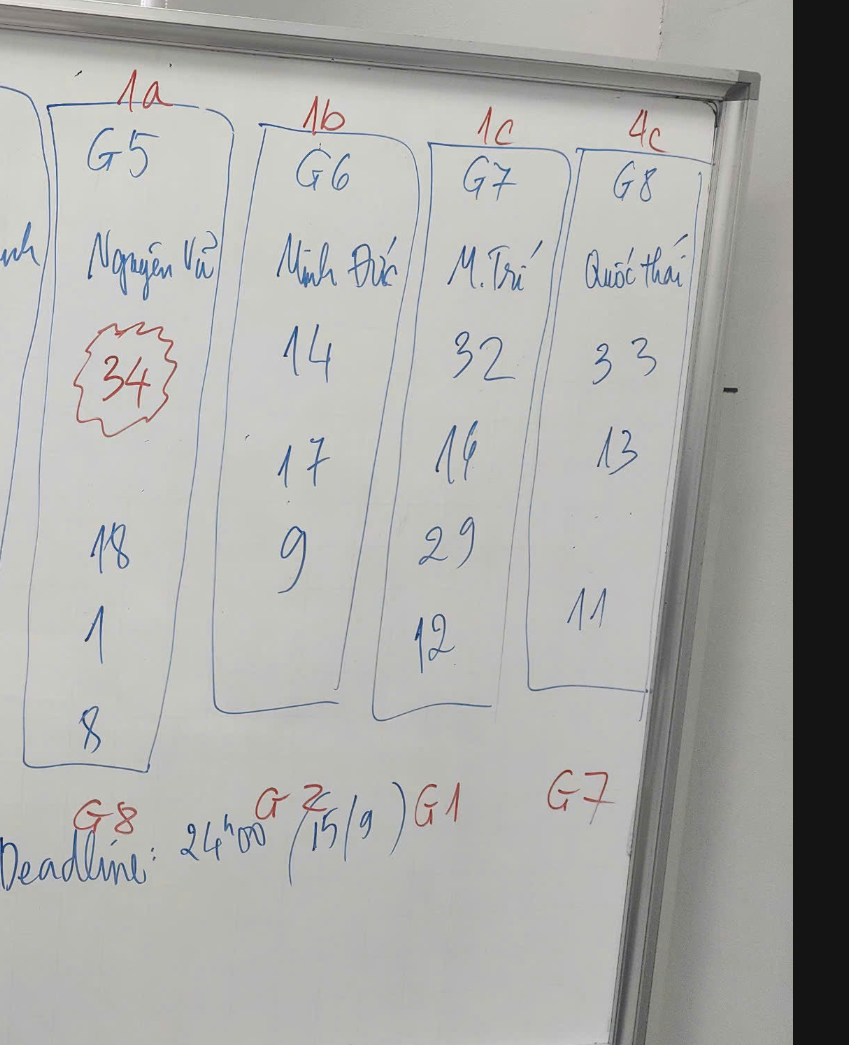 1a
G5
Nguyên Vũ
34
18
1
8
G8
1b
G6
Minh Đức
14
17
9
G2
1c
G7
M.Trí
32
29
12
G1
4c
G8
Quốc thái
33
13
11
G7
Deadline: 24h00 (15/9)